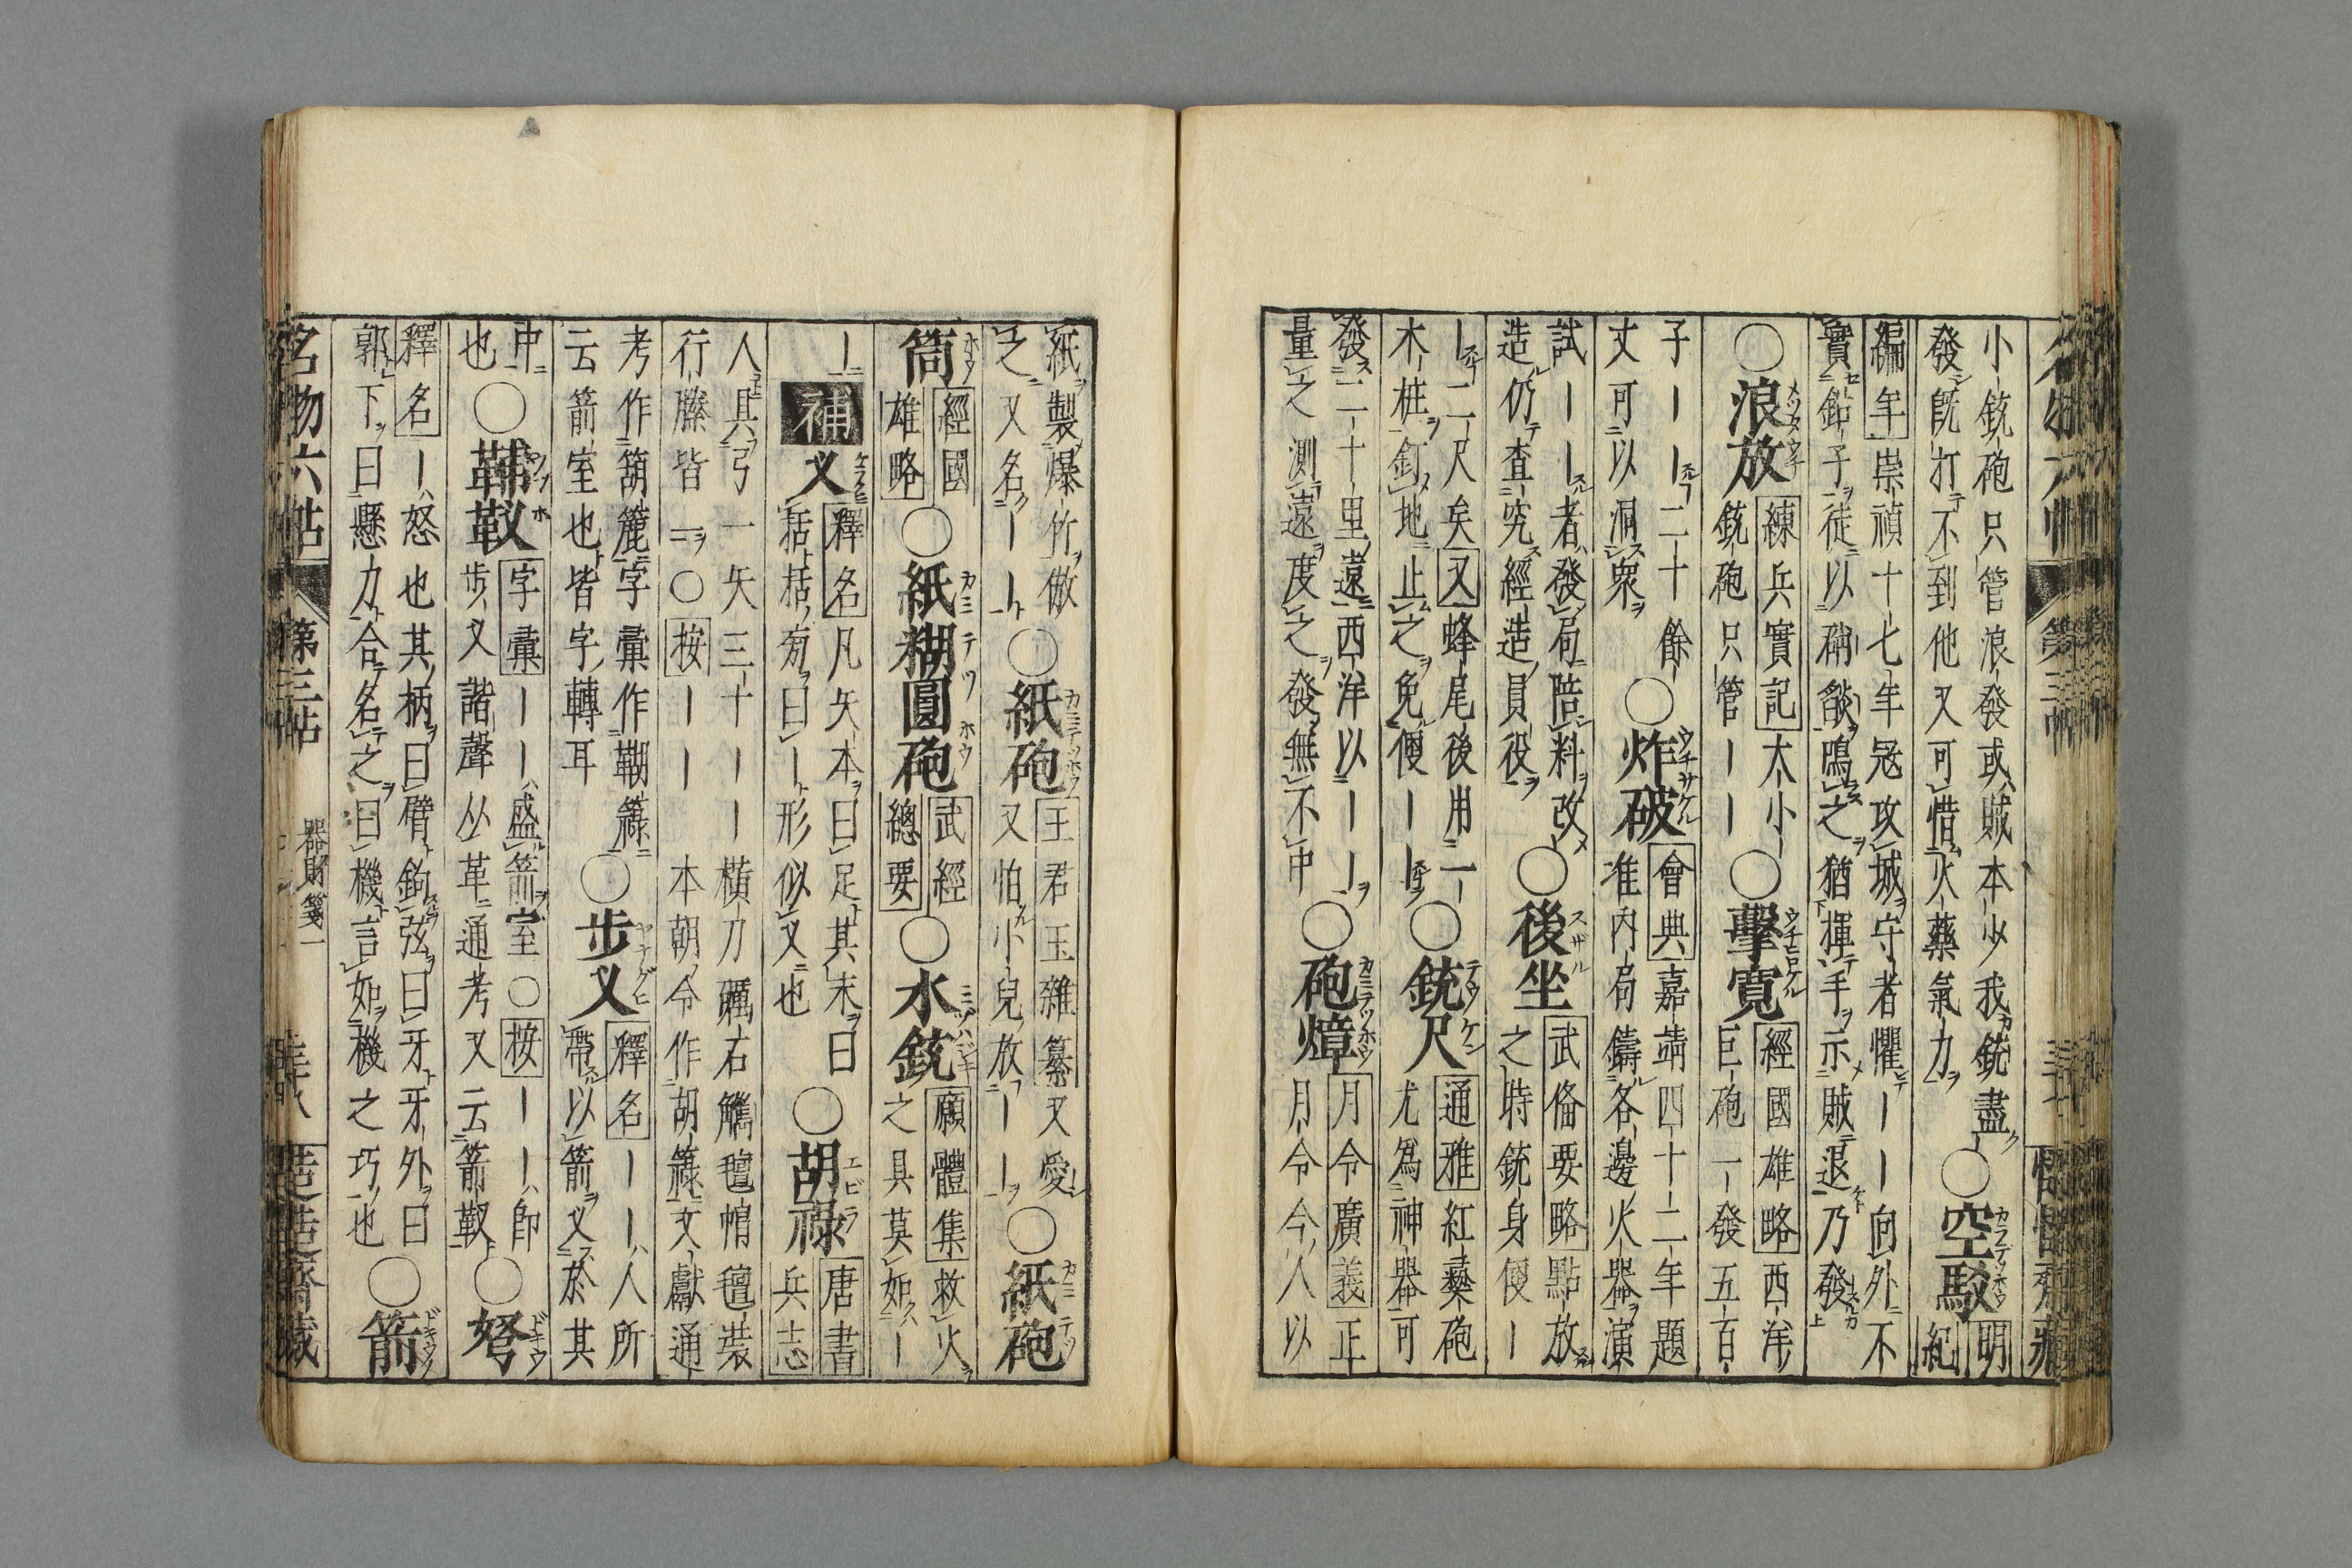 小銃砲只管浪發或賊本少我銃盡
發既打不到他又可惜火藥氣力
○空駁
明
紀
編年崇禎十七年冦攻城守者懼――向外不
實鉛子徒以硝燄鳴之猶揮手示賊退乃發
○浪放
練兵實記大小
銃砲只管――
○擊寛
經國雄略西洋
巨砲一發五百
子―――二十餘
丈可以洞衆
○炸破
會典嘉靖四十二年題
准内局鑄各邊火器演
試――者發局陪料改
造仍査究經造員役
○後坐
武俻要略點放
之時銃身便―
―二尺矣又蜂尾後用二
木樁釘地止之免便――
○銃尺
通雅紅藥砲
尤爲神器可
發二十里遠西洋以――
量之測遠度之發無不中
○砲㷰
月令廣義正
月令今人以
紙製爆竹倣
之又名――
○紙砲
王君玉雜纂又愛
又怕小兒放――
○紙砲
筒
經國
雄略
○紙糊圓砲
武經
總要
○水銃
願體集救火
之具莫如―
―
補
叉
釋名凡矢本曰足其末曰
栝栝旁曰―形似叉也
○胡祿
唐書
兵志
人具弓一矢三十―――橫刀礪石觿氊帽氊裝
行縢皆一○按―――本朝令作胡簶文獻通
考作箶簏字彙作鞴簶
云箭室也皆字轉耳
○步叉
釋名――人所
帶以箭叉於其
中
也
○鞴靫
字彙――盛箭室○按――卽
步叉諧聲从革通考又云箭靫
○弩
釋名―怒也其柄曰臂鉤弦曰牙牙外曰
郭下曰懸刀合名之曰機言如機之巧也
○箭
名物六帖 第三帖 器財箋一